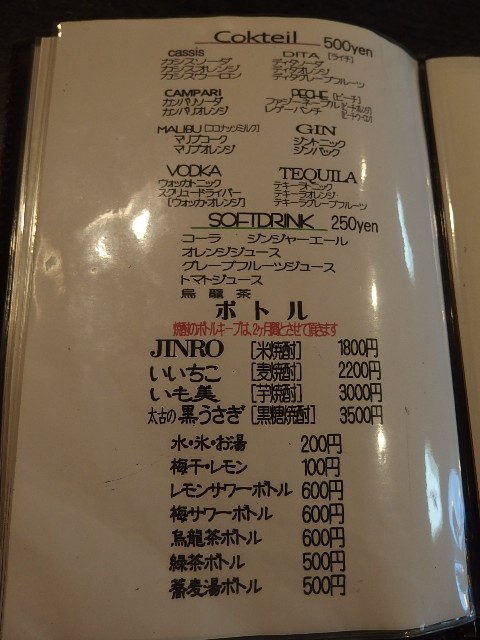 Cokteil 500yen
cassis
カシスソーダ
カシスオレンジ
カシスウーロン
DITA [ライチ]
ディタソーダ
ディタオレンジ
ディタグレープフルーツ
CAMPARI
カンパリソーダ
カンパリオレンジ
PECHE [ピーチ]
ファジーネーブル
レゲーパンチ
MALIBU [ココナッツミルク]
マリブコーク
マリブオレンジ
GIN
ジントニック
ジンバック
VODKA
ウォッカトニック
スクリュードライバー
[ウォッカ・オレンジ]
TEQUILA
テキーラトニック
テキーラオレンジ
テキーラグレープフルーツ
SOFTDRINK 250yen
コーラ ジンジャーエール
オレンジジュース
グレープフルーツジュース
トマトジュース
烏龍茶
ボトル
焼酎のボトルキープは、2ヶ月間とさせて頂きます
JINRO [米焼酎] 1800円
いいちこ [麦焼酎] 2200円
いも美 [芋焼酎] 3000円
太古の黒うさぎ [黒糖焼酎] 3500円
水・氷・お湯 200円
梅干・レモン 100円
レモンサワーボトル 600円
梅サワーボトル 600円
烏龍茶ボトル 600円
緑茶ボトル 500円
蕎麦湯ボトル 500円